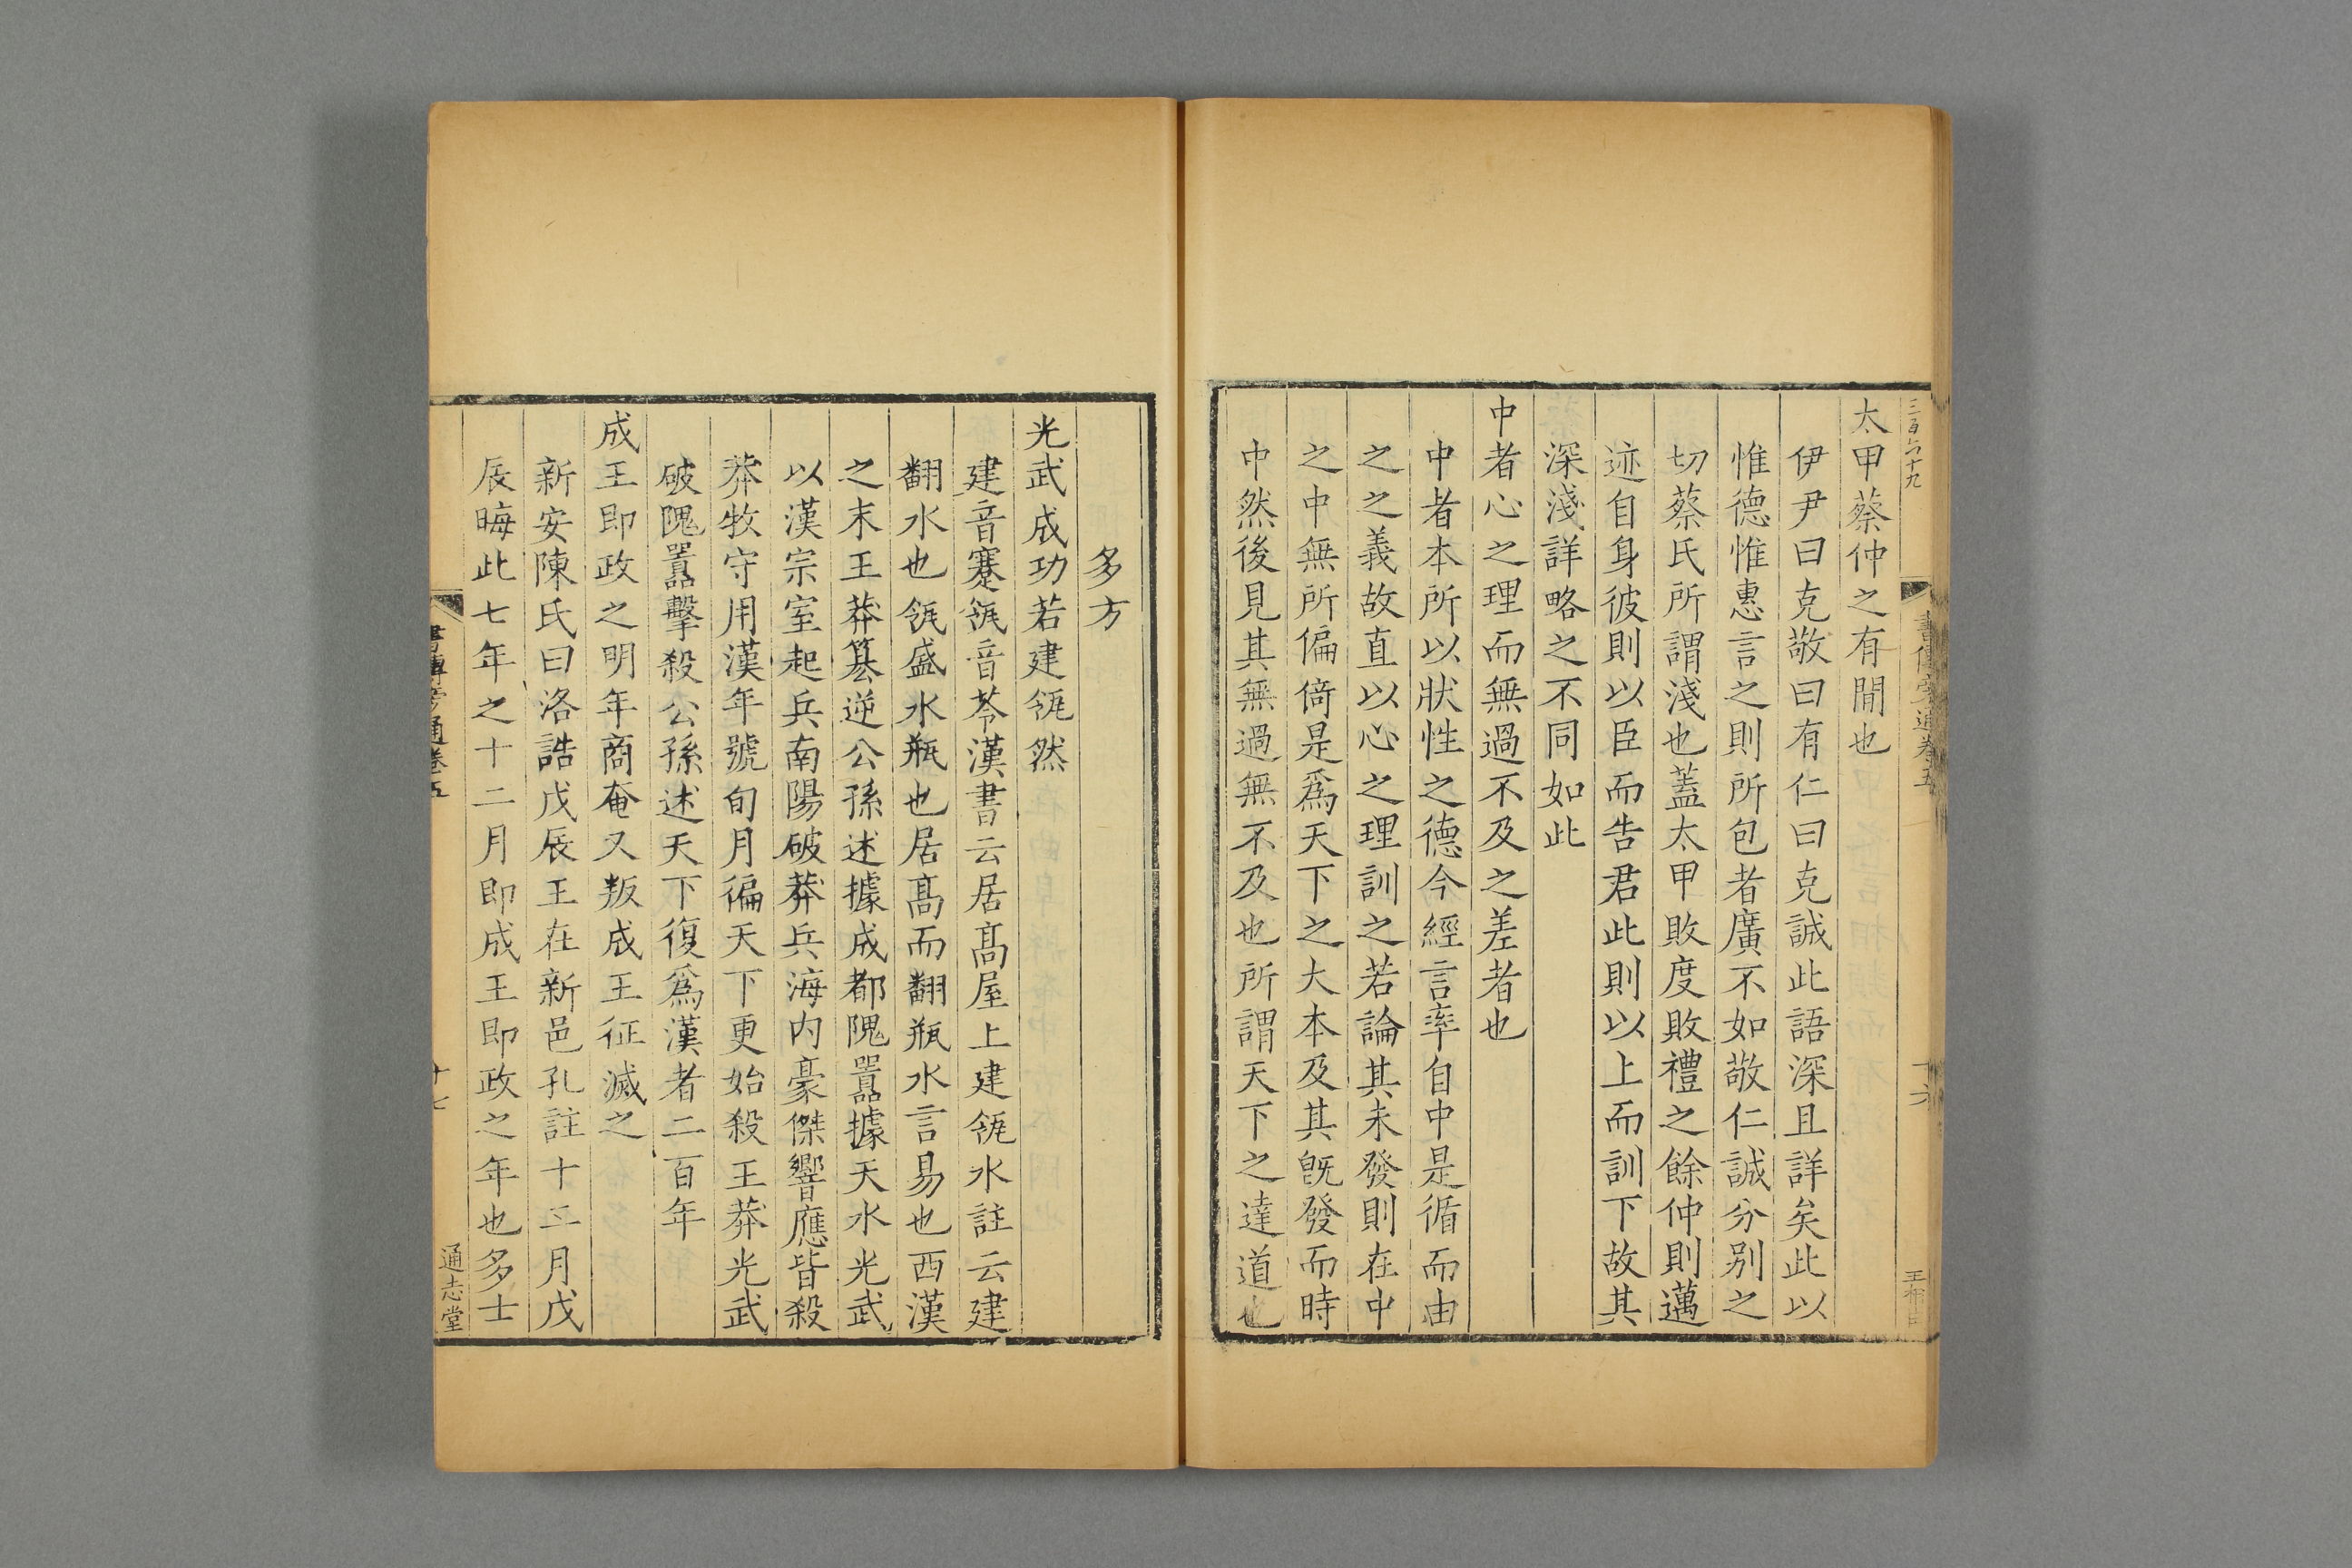 三百六十九
書傳旁通卷五
十六
太甲蔡仲之有間也
伊尹曰克敬曰有仁曰克誠此語深且詳矣此以
惟德惟惠言之則所包者廣不如敬仁誠分别之
切蔡氏所謂淺也蓋太甲敗度敗禮之餘仲則邁
迹自身彼則以臣而告君此則以上而訓下故其
深淺詳略之不同如此
中者心之理而無過不及之差者也
中者本所以狀性之德今經言率自中是循而由
之之義故直以心之理訓之若論其未發則在中
之中無所偏倚是爲天下之大本及其旣發而時
中然後見其無過無不及也所謂天下之達道也
多方
光武成功若建瓴然
建音蹇瓴音苓漢書云居髙屋上建瓴水註云建
翻水也瓴盛水瓶也居髙而翻瓶水言易也西漢
之末王莽篡逆公孫述據成都隗囂據天水光武
以漢宗室起兵南陽破莽兵海内豪傑響應皆殺
莽牧守用漢年號旬月徧天下更始殺王莽光武
破隗囂擊殺公孫述天下復爲漢者二百年
成王即政之明年商奄又叛成王征滅之
新安陳氏曰洛誥戊辰王在新邑孔註十二月戊
辰晦此七年之十二月即成王即政之年也多士
書傳旁通卷五
十七
通志堂